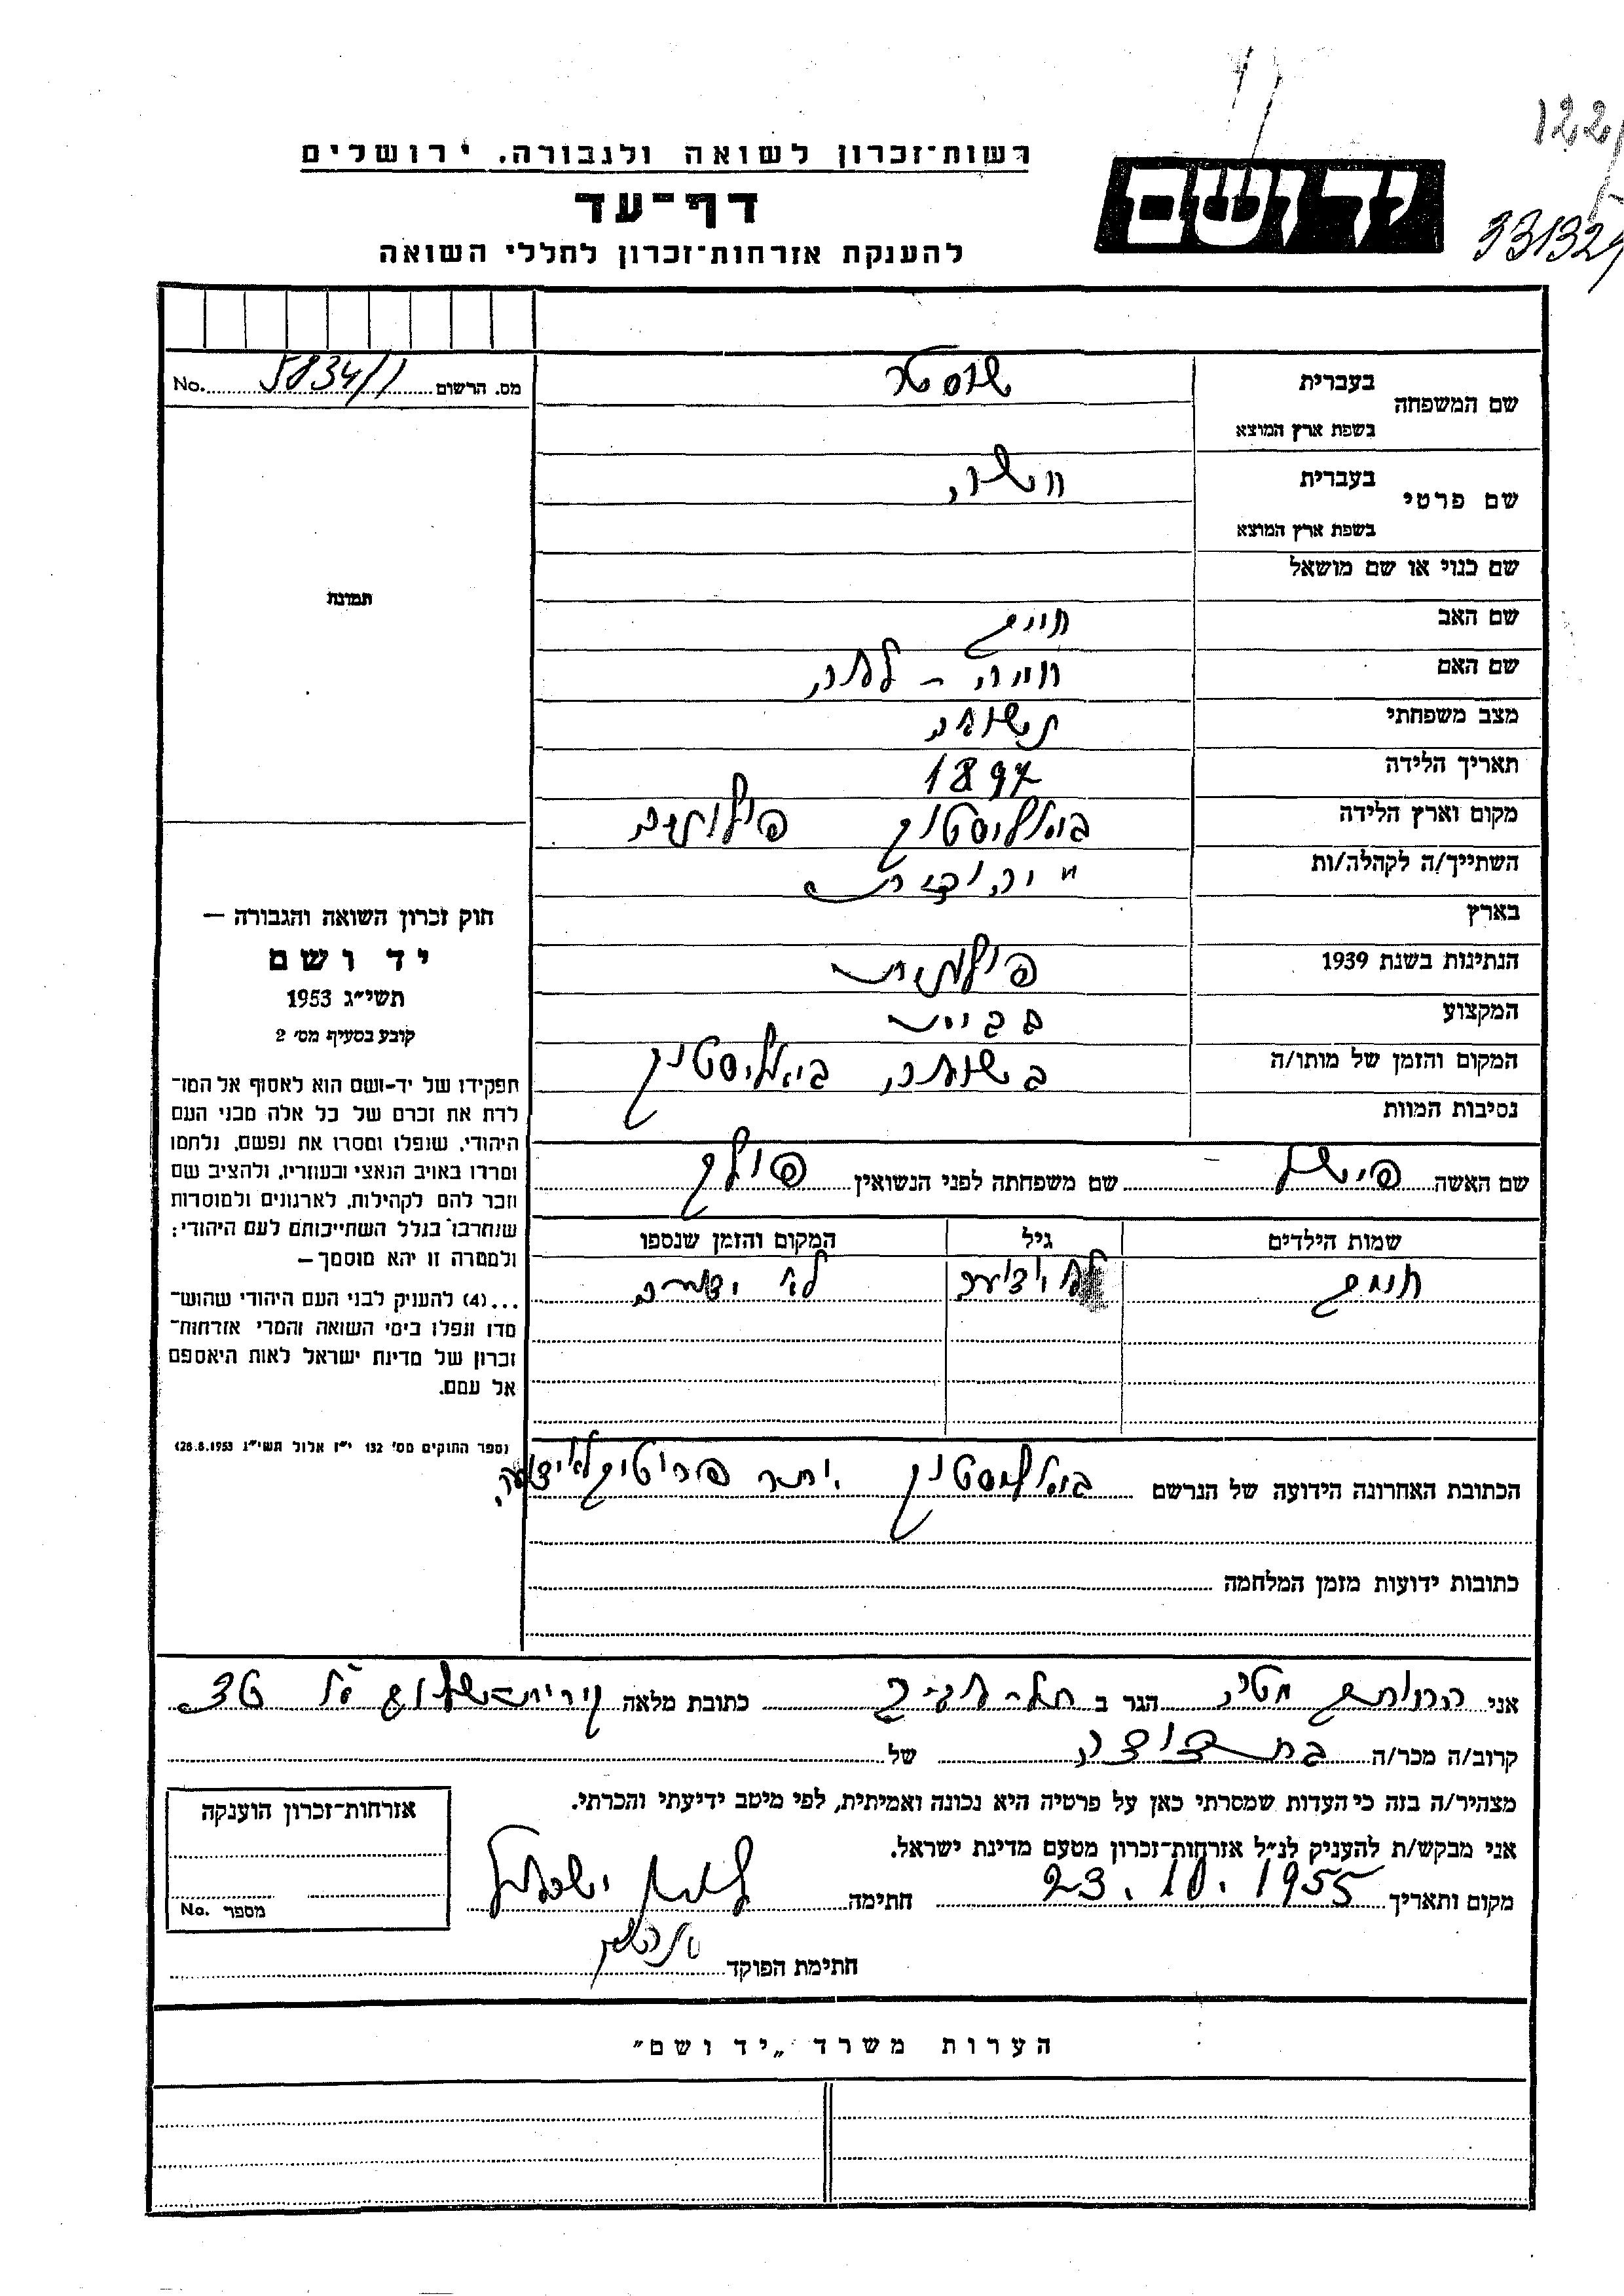 122
331329
יד ושם
רשות־זכרון לשואה ולגבורה. ירושלים
דף־עד
להענקת אזרחות־זכרון לחללי השואה
מס. הרשום 5834/1 No.
שם המשפחה
בעברית שוסטר
בשפת ארץ המוצא
שם פרטי
בעברית משה
בשפת ארץ המוצא
שם כנוי או שם מושאל
שם האב חיים
שם האם חיה - לאה
מצב משפחתי נשואה
תאריך הלידה 1897
מקום וארץ הלידה ביאליסטוק פולניה
השתייך/ה לקהלה/ות יהודית
בארץ
הנתינות בשנת 1939 פולנית
המקצוע
המקום והזמן של מותו/ה בשואה, ביאליסטוק
נסיבות המוות
שם האשה שם משפחתה לפני הנשואין
שמות הילדים גיל המקום והזמן שנספו
חיים לא ידוע לא ידוע
הכתובת האחרונה הידועה של הנרשם ביאליסטוק יתר פרטים לא ידוע
כתובות ידועות מזמן המלחמה
אני הגר ב תל-אביב כתובת מלאה קרית-שלום
קרוב/ה מכר/ה בת דודה של
מצהיר/ה בזה כי העדות שמסרתי כאן על פרטיה היא נכונה ואמיתית, לפי מיטב ידיעתי והכרתי.
אני מבקש/ת להעניק לנ״ל אזרחות־זכרון מטעם מדינת ישראל.
מקום ותאריך 23.10.1955 חתימה
חתימת הפוקד
תמונת
חוק זכרון השואה והגבורה —
יד ושם
תשי״ג 1953
קובע בסעיף מס׳ 2
תפקידו של יד-ושם הוא לאסוף אל המו־
לדת את זכרם של כל אלה מבני העם
היהודי, שנפלו ומסרו את נפשם, נלחמו
ומרדו באויב הנאצי ובעוזריו, ולהציב שם
וזכר להם לקהילות, לארגונים ולמוסדות
שנחרבו בגלל השתייכותם לעם היהודי;
ולמטרה זו יהא מוסמך —
...(4) להעניק לבני העם היהודי שהוש־
מדו ונפלו בימי השואה והמרי אזרחות־
זכרון של מדינת ישראל לאות היאספם
אל עמם.
(ספר החוקים מס׳ 132 י״ז אלול תשי״ג 28.8.1953)
אזרחות־זכרון הוענקה
מספר No.
הערות משרד „יד ושם״